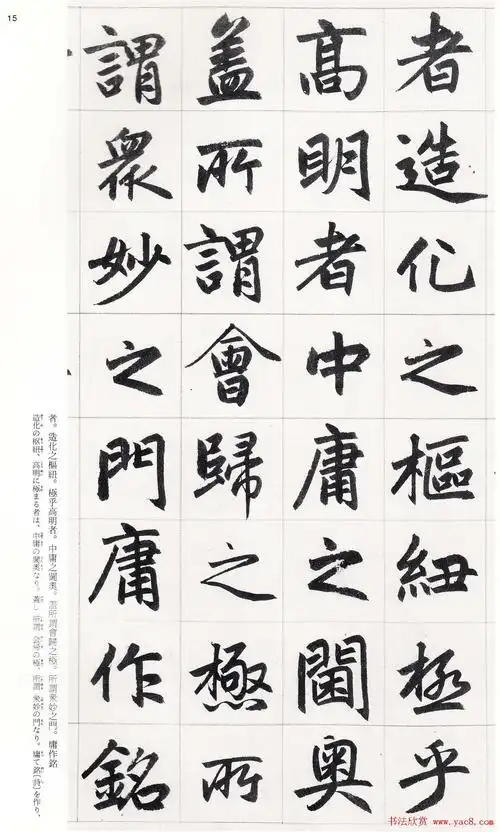 15
者造化之樞紐極乎
高明者中庸之閫奧
盖所謂會歸之極所
謂衆妙之門庸作銘
者。造化之樞紐。極乎高明者。中庸之閫奥。蓋所謂會歸之極。所謂衆妙之門。庸作銘
造化の枢紐、高明に極まる者は、中庸の閫奥なり。蓋し所謂会帰の極、所謂衆妙の門なり。庸て銘(詩)を作り、
书法欣赏 www.yac8.com